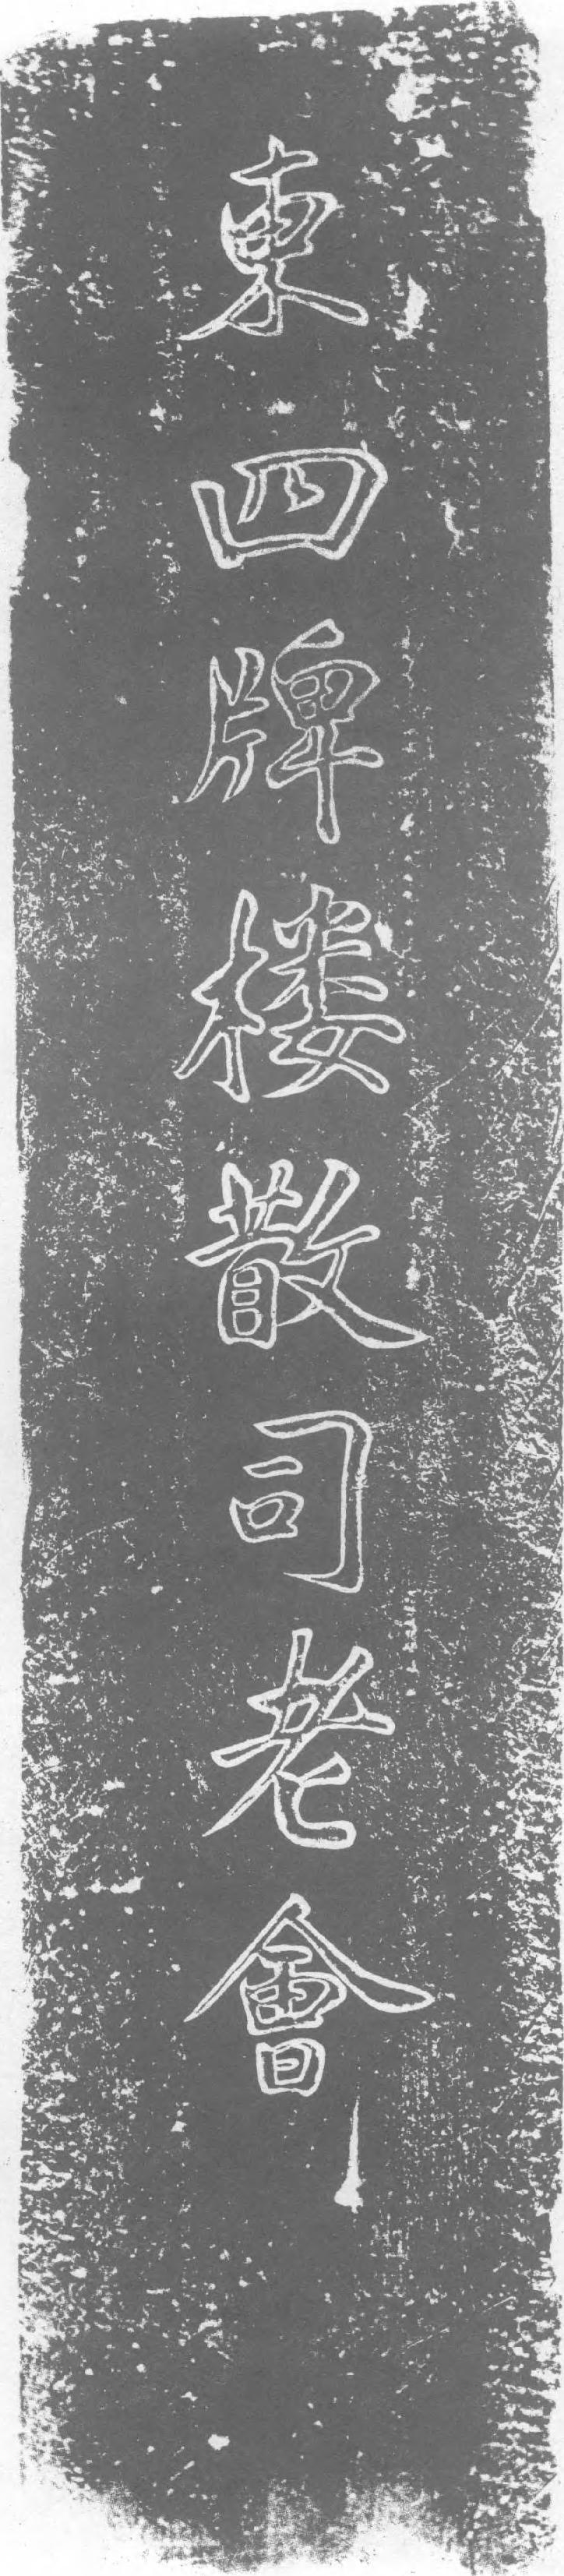 東四牌楼散司老會